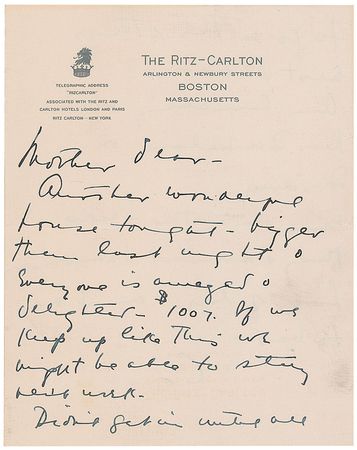 THE RITZ-CARLTON
ARLINGTON & NEWBURY STREETS
BOSTON
MASSACHUSETTS
TELEGRAPHIC ADDRESS
"RIZCARLTON"
ASSOCIATED WITH THE RITZ AND
CARLTON HOTELS LONDON AND PARIS
RITZ CARLTON - NEW YORK
Mother dear -
Another wonderful
house tonight - bigger
then last night &
Everyone is amazed &
delighted - $1007. If we
Keep up like this we
might be able to stay
next week -
Didn't get in until all